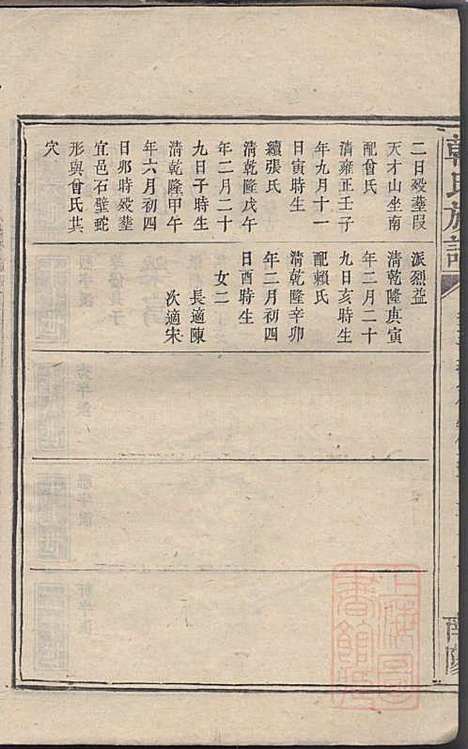 二日歿葬葭
天才山坐南
配曾氏
清雍正壬子
年九月十一
日寅時生
續張氏
清乾隆戊午
年二月二十
九日子時生
清乾隆甲午
年六月初四
日卯時歿葬
宜邑石壁蛇
形與曾氏共
穴
派烈益
清乾隆庚寅
年二月二十
九日亥時生
配賴氏
清乾隆辛卯
年二月初四
日酉時生
女二
長適陳
次適宋
氏族譜
南陽
上海圖書館藏